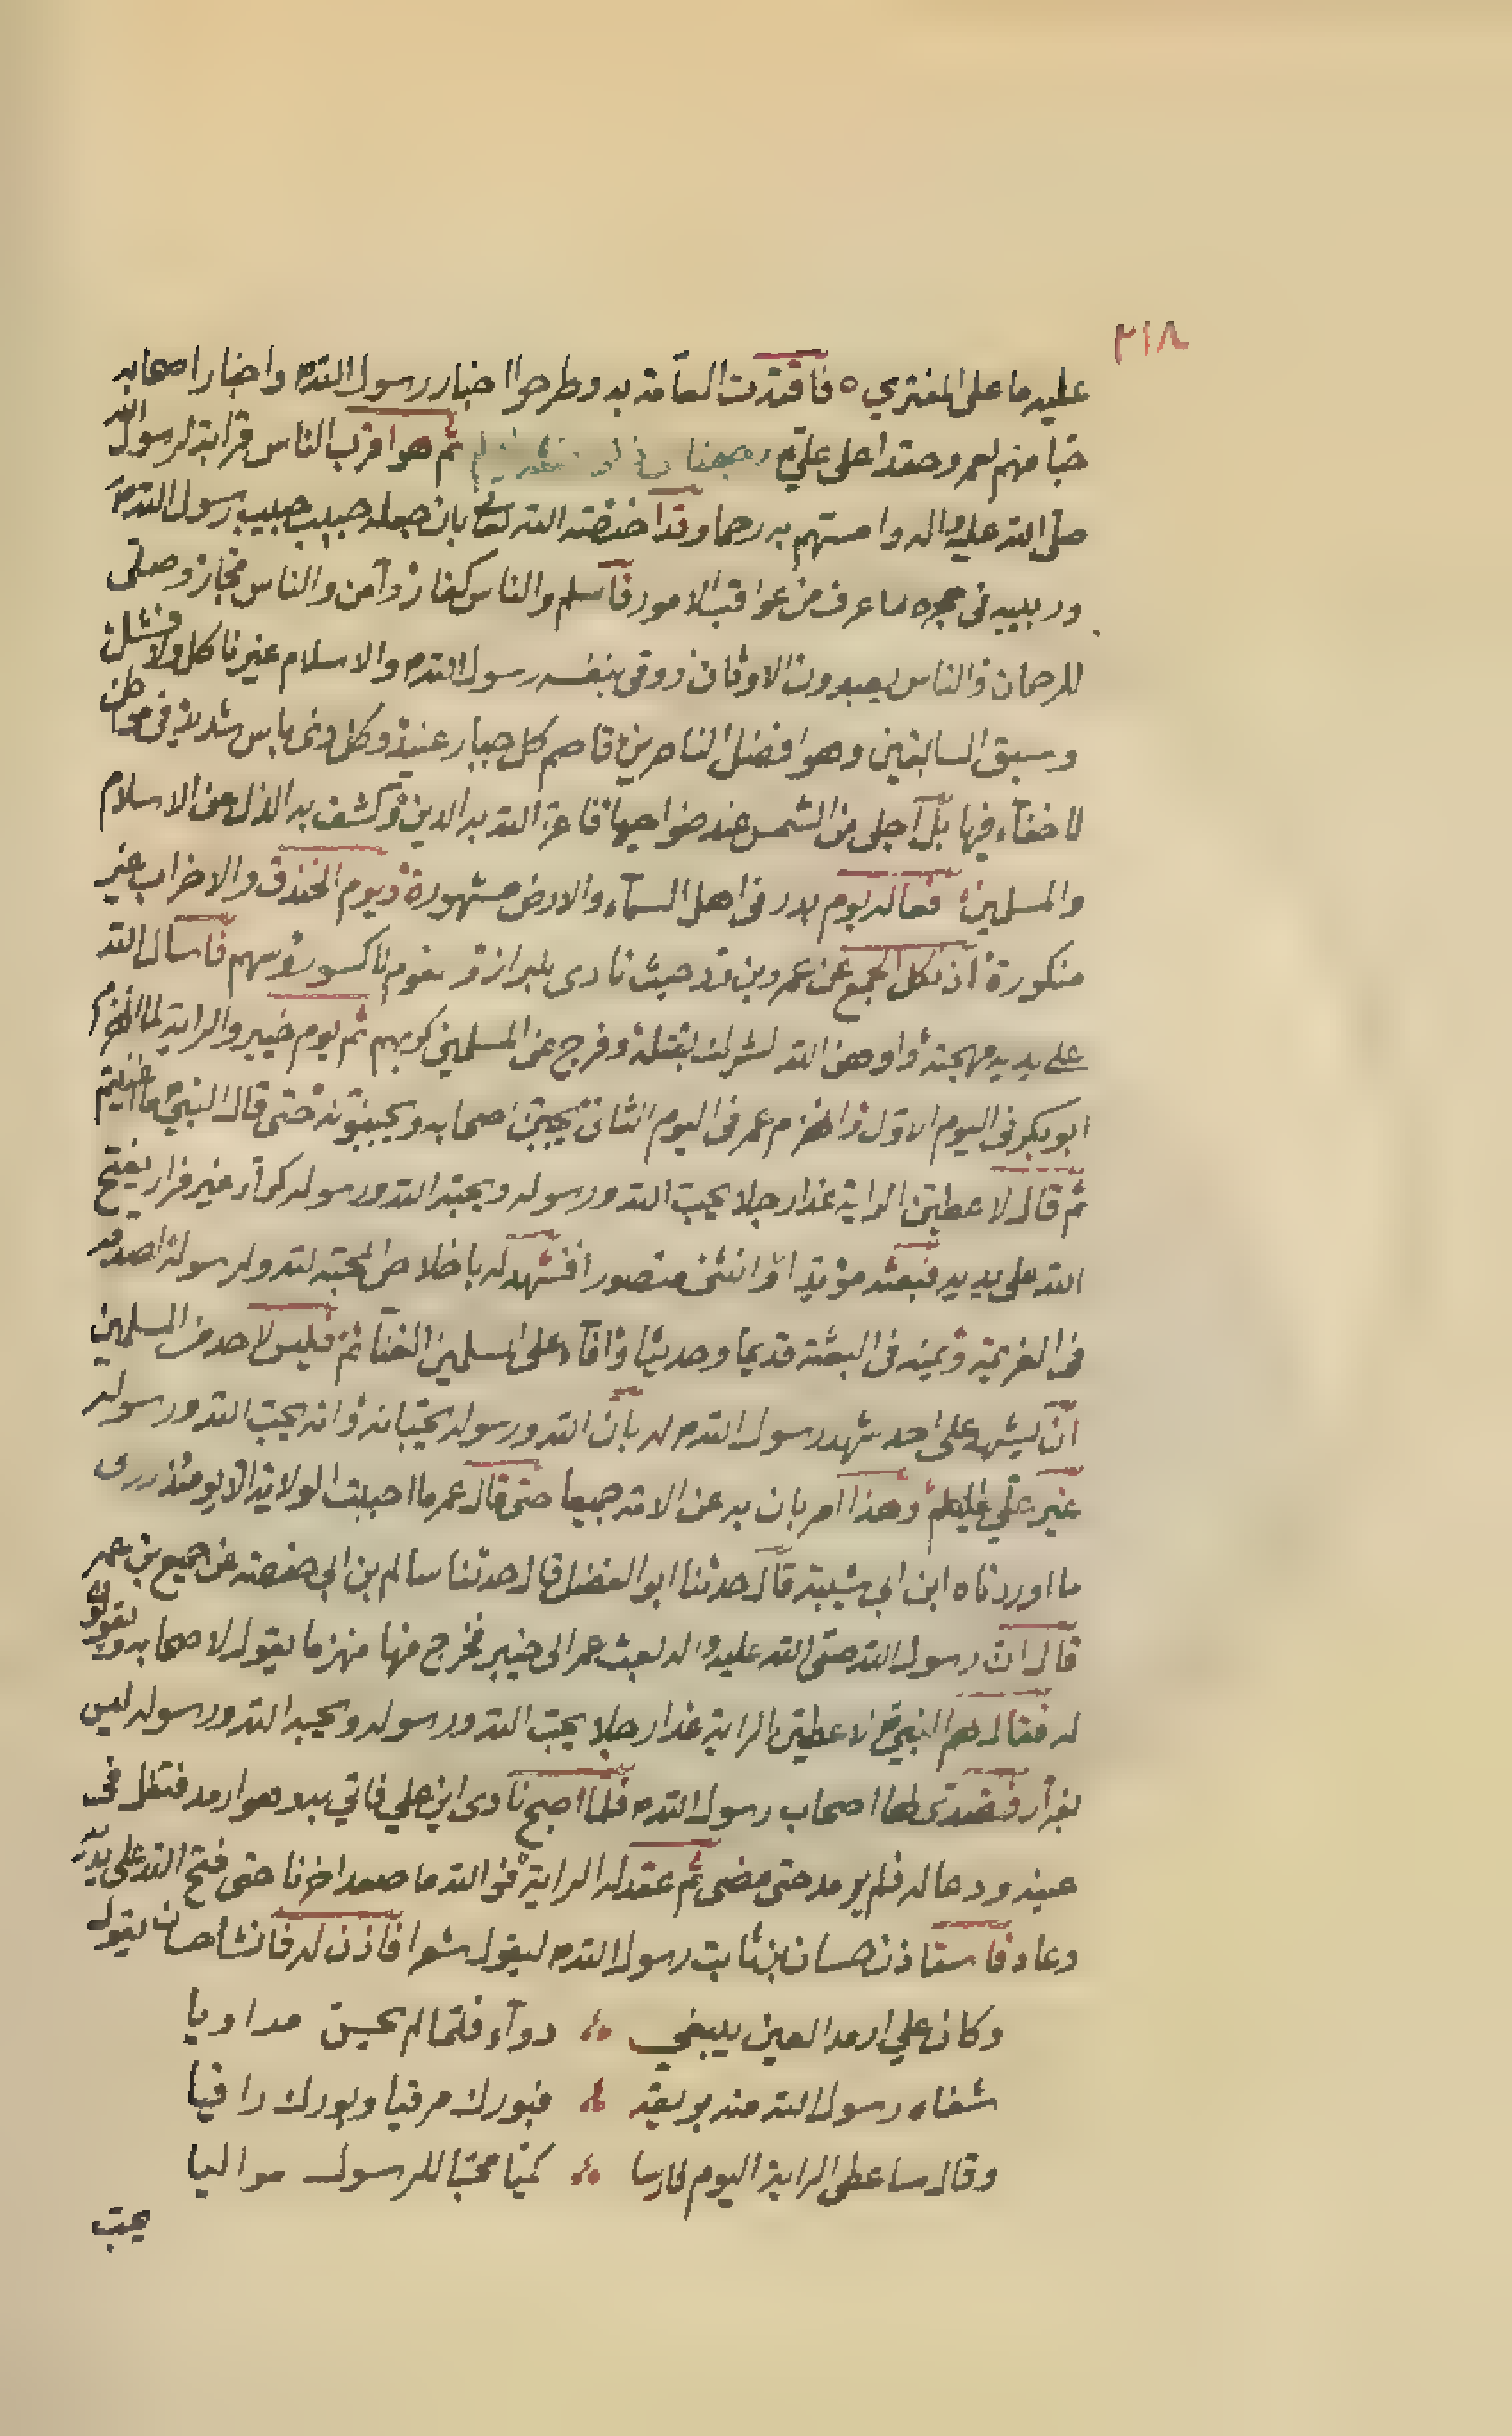 ٢١٨
عليه ما على المفتري ٥ فاقتدت العامة به وطرحوا اخبار رسول الله ص واخبار اصحابه
حبا منهم لعمر وحقدا على علي ع رجعنا ثم هو اقرب الناس قرابة لرسول الله
صلى الله عليه واله وامستهم به رحما وقد اختصه الله تعالى بان جعله حبيب حبيب رسول الله ص
وربيبه فى حجره لما عرف من عواقب الامور فاسلم والناس كفار وآمن والناس فجار وصلى
للرحمان والناس يعبدون الاوثان ووقى بنفسه رسول الله ص والاسلام غير ناكل ولا فشل
وسبق السابقين وهو افضل الناصرين قاصم كل جبار عنيد وكل ذى باس شديد فى مواطن
لا خفآء فيها بل اجلى من الشمس عند ضواحيها فاعز الله به الدين وكشف به الذل عن الاسلام
والمسلمين فعاله يوم بدر فى اهل السمآء والارض مشهورة ويوم الخندق والاحزاب غير
منكورة اذ نكل الجمع عن عمرو بن ود حيث نادى بالبراز والقوم ناكسو رؤسهم فاسال الله
على يديه مهجته واوهن الله الشرك بقتله وفرج عن المسلمين كربهم ثم يوم خيبر والراية لما انهزم
ابو بكر فى اليوم الاول وانهزم عمر فى اليوم الثانى يجبن اصحابه ويجبنونه حتى قال النبي ص ما
ثم قال لاعطين الراية غدا رجلا يحب الله ورسوله ويحبه الله ورسوله كرار غير فرار يفتح
الله على يديه فبعثه مؤيدا وانثنى منصورا فشهد له باخلاص المحبة لله ولرسوله
فى العزيمة ويمنه فى البعثة قديما وحديثا وافآء على المسلمين الغنائم فليس لاحد من المسلمين
ان يشهد على احد شهد رسول الله ص له بان الله ورسوله يحبانه وانه يحب الله ورسوله
غير علي فليعلم وهذا امر بان به عن الامة جميعا حتى قال عمر ما احببت الولاية الا يومئذ
ما اوردناه ابن ابي شيبة قال حدثنا ابو الفضل قال حدثنا سالم بن ابي حفصة عن جميع بن عمير
قال ان رسول الله صلى الله عليه واله بعث عمر الى خيبر فخرج منها منهزما يقول لاصحابه ويقولون
له فقال لهم النبي ص لاعطين الراية غدا رجلا يحب الله ورسوله ويحبه الله ورسوله ليس
بفرار فتصدى لها اصحاب رسول الله ص فلما اصبح نادى اين علي فاتي به وهو ارمد فتفل فى
عينه ودعا له فلم يرمد حتى مضى ثم عقد له الراية فوالله ما صعد اخرنا حتى فتح الله على يديه
وعاد فاستاذن حسان بن ثابت رسول الله ص ليقول شعرا فاذن له فانشا حسان يقول
وكان علي ارمد العين يبتغي دوآء فلما لم يحس مداويا
شفاه رسول الله منه بريقه فبورك مرقيا وبورك راقيا
وقال ساعطى الراية اليوم فارسا كميا محبا للرسول مواليا
يحب